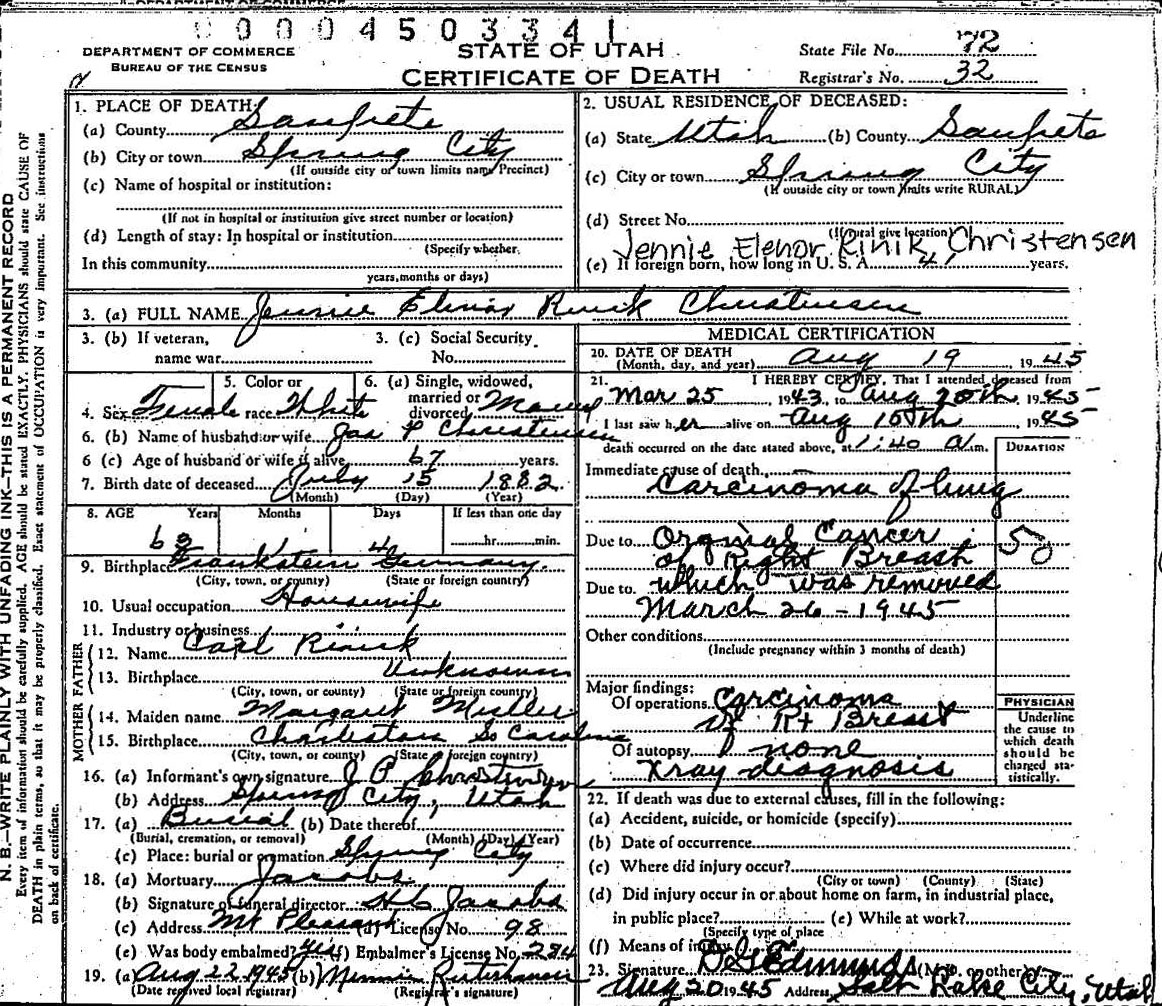 0 0 0 4 5 0 3 3 4 1
DEPARTMENT OF COMMERCE
BUREAU OF THE CENSUS
STATE OF UTAH
CERTIFICATE OF DEATH
State File No. 72
Registrar's No. 32
N. B.—WRITE PLAINLY WITH UNFADING INK—THIS IS A PERMANENT RECORD
Every item of information should be carefully supplied. AGE should be stated EXACTLY. PHYSICIANS should state CAUSE OF
DEATH in plain terms, so that it may be properly classified. Exact statement of OCCUPATION is very important. See instructions
on back of certificate.
1. PLACE OF DEATH
(a) County Sanpete
(b) City or town Spring City
(If outside city or town limits name Precinct)
(c) Name of hospital or institution:
(If not in hospital or institution give street number or location)
(d) Length of stay: In hospital or institution
(Specify whether
In this community
years, months or days)
2. USUAL RESIDENCE OF DECEASED:
(a) State Utah (b) County Sanpete
(c) City or town Spring City
(If outside city or town limits write RURAL)
(d) Street No.
(If rural give location)
Jennie Elenor Rinik Christensen
(e) If foreign born, how long in U. S. A. 41 years.
3. (a) FULL NAME Jennie Elenor Rinik Christensen
3. (b) If veteran,
name war
3. (c) Social Security
No.
4. Sex Female
5. Color or
race White
6. (a) Single, widowed,
married or
divorced Married
6. (b) Name of husband or wife Jas P Christensen
6 (c) Age of husband or wife if alive 67 years.
7. Birth date of deceased July 15 1882
(Month) (Day) (Year)
8. AGE Years Months Days If less than one day
63 1 4 hr. min.
9. Birthplace Frankstein Germany
(City, town, or county) (State or foreign country)
10. Usual occupation Housewife
11. Industry or business
FATHER
12. Name Carl Rinik
13. Birthplace Unknown
(City, town, or county) (State or foreign country)
MOTHER
14. Maiden name Margaret Miller
15. Birthplace Charlestown So Carolina
(City, town, or county) (State or foreign country)
16. (a) Informant's own signature J P Christensen
(b) Address Spring City, Utah
17. (a) Burial (b) Date thereof
(Burial, cremation, or removal) (Month) (Day) (Year)
(c) Place: burial or cremation Spring City
18. (a) Mortuary Jacobs
(b) Signature of funeral director H C Jacobs
(c) Address Mt Pleasant (d) License No. 98
(e) Was body embalmed? yes (f) Embalmer's License No. 284
19. (a) Aug 22 1945 (b) Minnie
(Date received local registrar) (Registrar's signature)
MEDICAL CERTIFICATION
20. DATE OF DEATH
(Month, day, and year) Aug 19 1945
21. I HEREBY CERTIFY, That I attended deceased from
Mar 25, 1943, to Aug 20th, 1945
I last saw her alive on Aug 10th, 1945
death occurred on the date stated above, at 1:40 a m.
DURATION
Immediate cause of death
Carcinoma of lung
Due to Orginal Cancer
of Right Breast
50
Due to which was removed
March 26-1945
Other conditions
(Include pregnancy within 3 months of death)
Major findings:
Of operations Carcinoma
of Rt Breast
Of autopsy none
Xray diagnosis
PHYSICIAN
Underline
the cause to
which death
should be
charged sta-
tistically.
22. If death was due to external causes, fill in the following:
(a) Accident, suicide, or homicide (specify)
(b) Date of occurrence
(c) Where did injury occur?
(City or town) (County) (State)
(d) Did injury occur in or about home on farm, in industrial place,
in public place? (e) While at work?
(Specify type of place
(f) Means of injury
23. Signature D G Edmunds (M. D. or other)
Aug 20 1945 Address Salt Lake City, Utah